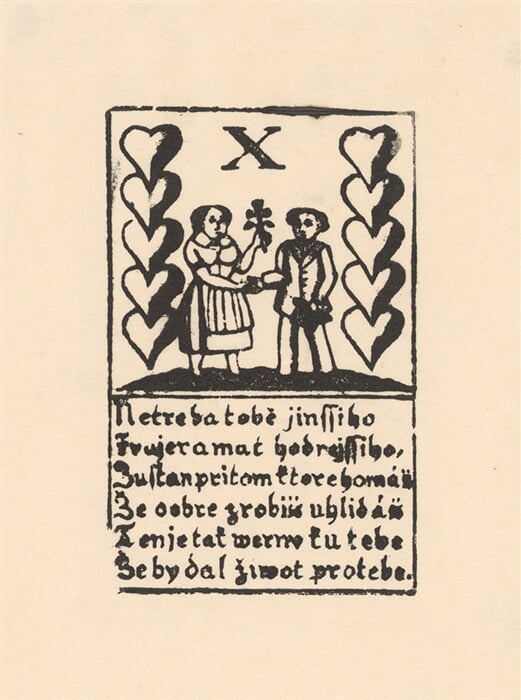 X
Netreba tobě jinssiho
hodnejssiho,
Zustan pritom ktereho máš
Že dobre zrobiš uhlidáš
Ten je tak werny ku tebe
Žeby dal život pro tebe.